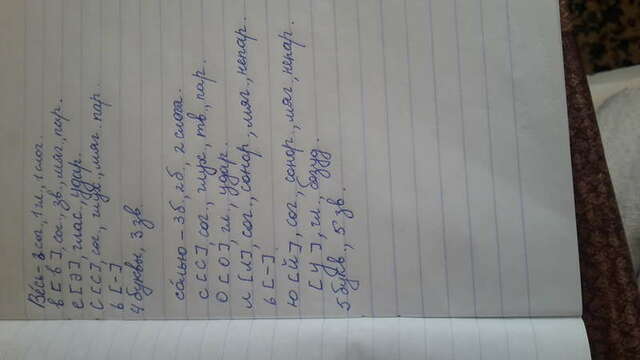 Весь - 3 сог, 1 гл, 1 слог.
в [в'] сог., зв., мяг., пар.
е [э], глас., удар.
с [с'], сог., глух., мяг., пар.
ь [-]
4 буквы, 3 зв.
солью - 3б, 2б, 2 слога.
с [с] сог., глух., тв., пар.
о [о], гл., удар.
л [л], сог., сонор., мяг., непар.
ь [-]
ю [й], сог., сонор., мяг., непар.
[у], гл.,
5 букв., 5 зв.